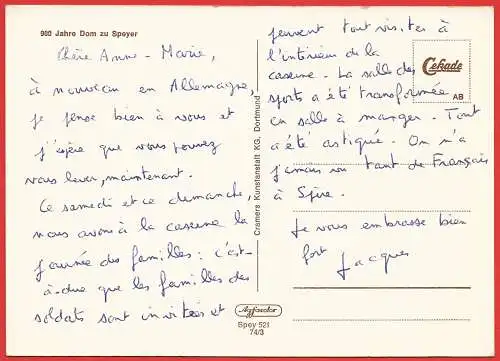 900 Jahre Dom zu Speyer
Chère Anne-Marie,
à nouveau en Allemagne,
je pense bien à vous et
j'espère que vous pouvez
vous lever, maintenant.
Ce samedi et ce dimanche,
nous avons à la caserne la
journée des familles : c'est-
à-dire que les familles des
soldats sont invitées et
Cramers Kunstanstalt KG, Dortmund
Agfacolor
Spey 521
74/3
peuvent tout visiter à
l'intérieur de la
caserne. La salle des
sports a été transformée
en salle à manger. Tout
a été astiqué. On n'a
jamais vu tant de Français
à Spire.
Je vous embrasse bien
fort Jacques
Cekade
AB